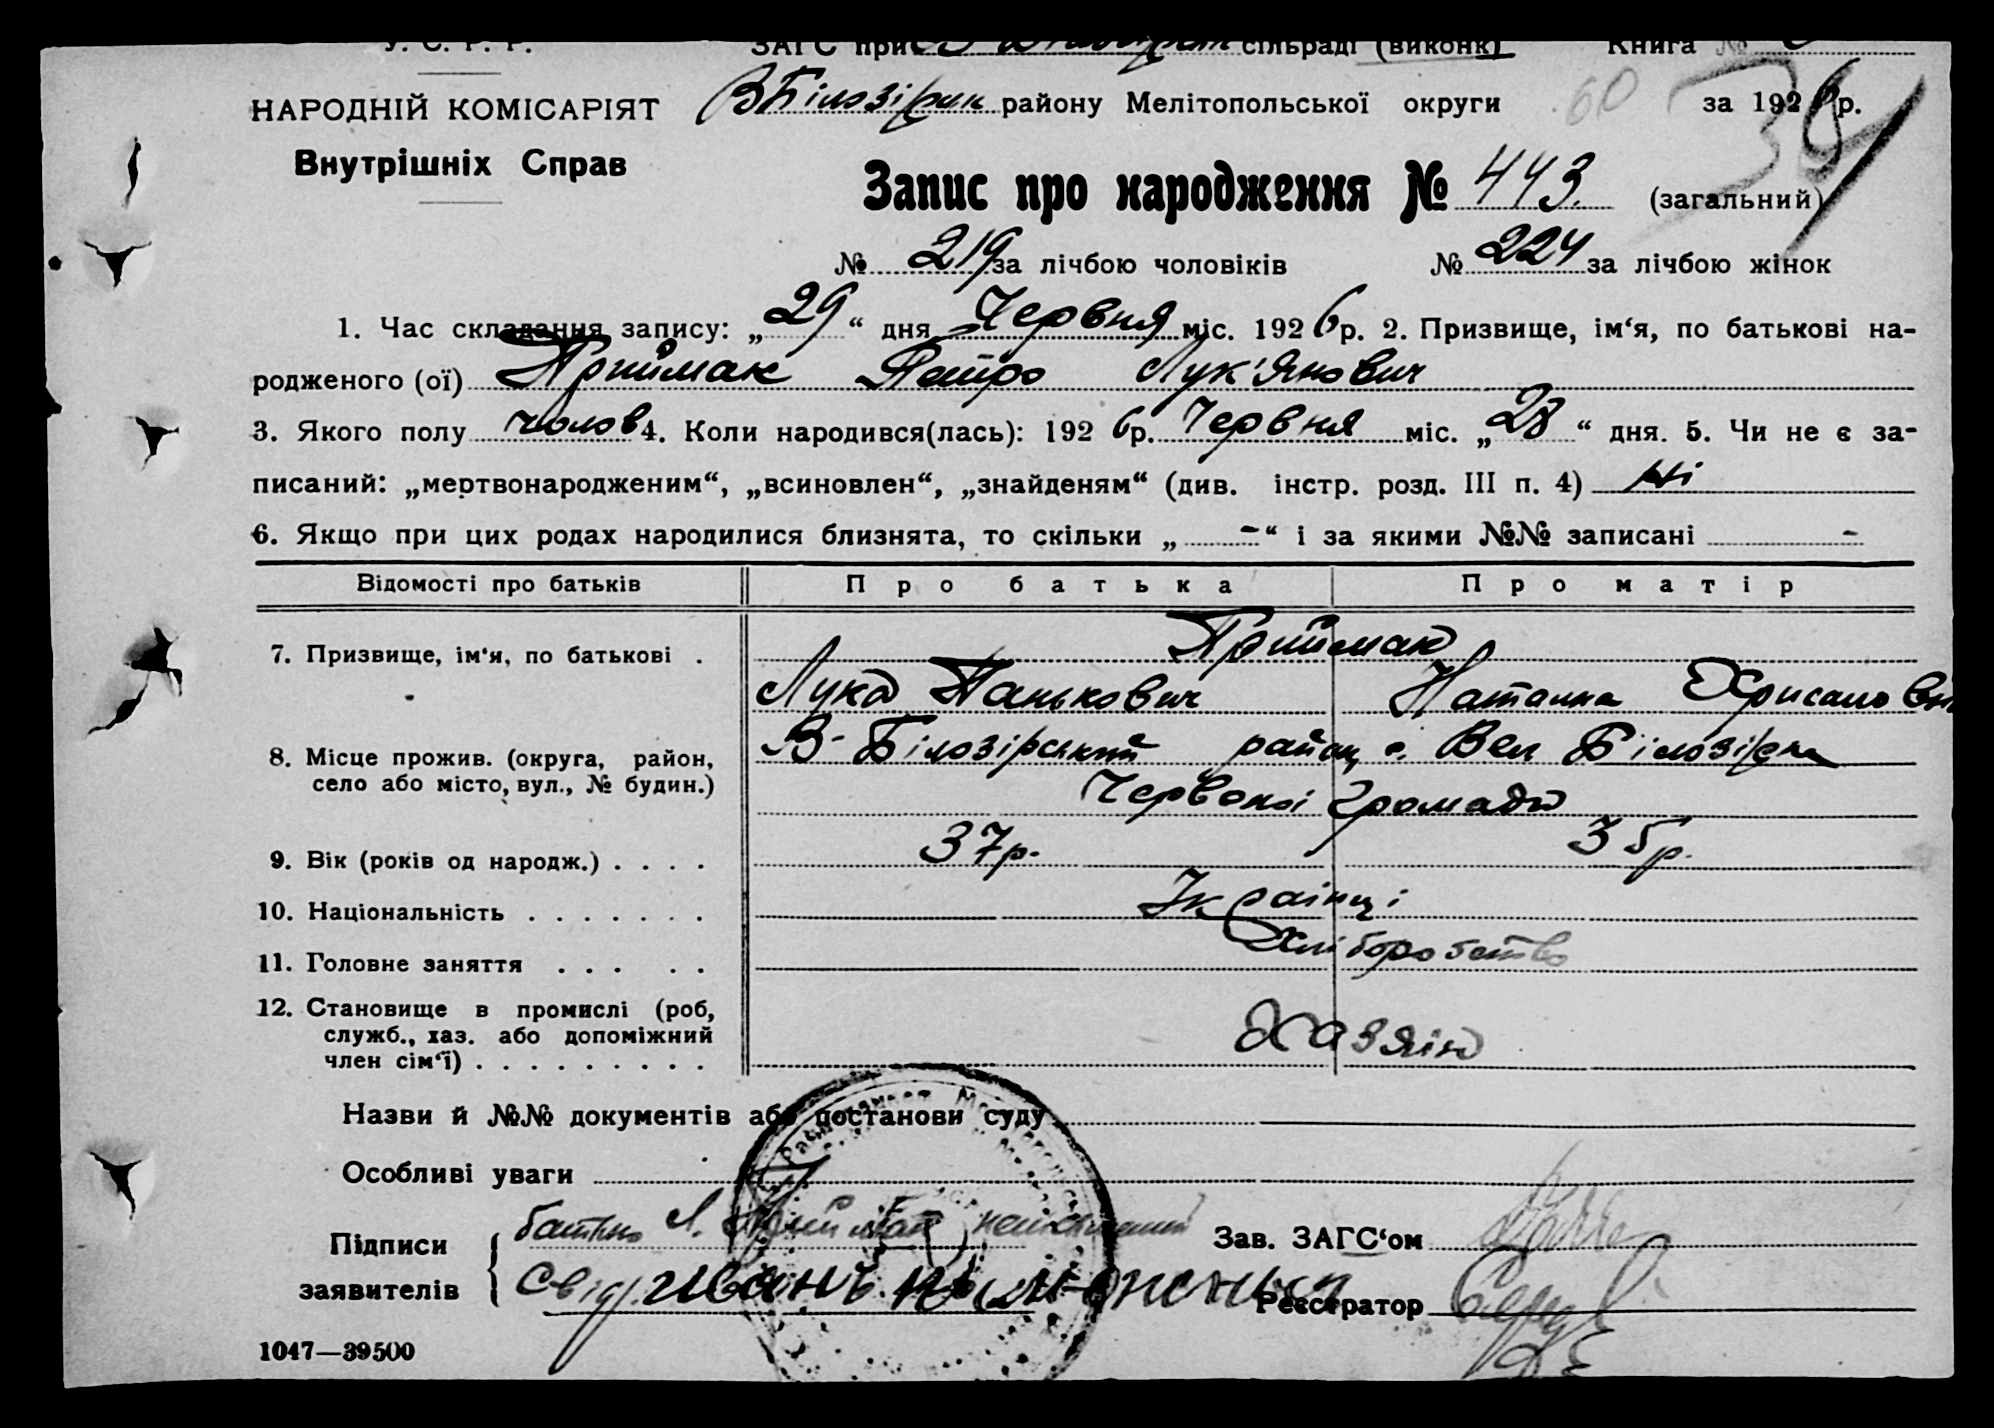 У. С. Р. Р. ЗАГС при сільраді (виконк) Книга №
НАРОДНІЙ КОМІСАРІЯТ В Білозірск району Мелітопольської округи 60 за 1926 р.
Внутрішніх Справ
Запис про народження № 443. (загальний)
№ 219 за лічбою чоловіків № 224 за лічбою жінок
1. Час складання запису: „29“ дня Червня міс. 1926 р. 2. Призвище, ім‘я, по батькові на-
родженого (ої) Приймак Петро Лук'янович
3. Якого полу чолов 4. Коли народився(лась): 1926 р. Червня міс. „28“ дня. 5. Чи не є за-
писаний: „мертвонародженим“, „всиновлен“, „знайденям“ (див. інстр. розд. III п. 4) ні
6. Якщо при цих родах народилися близнята, то скільки „ - “ і за якими №№ записані -
Відомості про батьків Про батька Про матір
7. Призвище, ім‘я, по батькові . Приймак
Лука Панькович Наталка Хрисанов
8. Місце прожив. (округа, район, В-Білозірський район с. Вел Білозірка
село або місто, вул., № будин.) Червоної громади
9. Вік (років од народж.) . . . . 37 р. 35 р.
10. Національність . . . . . . . Українці
11. Головне заняття . . . . . Хліборобство
12. Становище в промислі (роб,
служб., хаз. або допоміжний Хазяїн
член сім‘ї) . . . . . . . . .
Назви й №№ документів або постанови суду
Особливі уваги
Підписи батько Л. Приймак неписьменний Зав. ЗАГС‘ом
заявителів Свідк. Иванъ Реєстратор
1047—39500